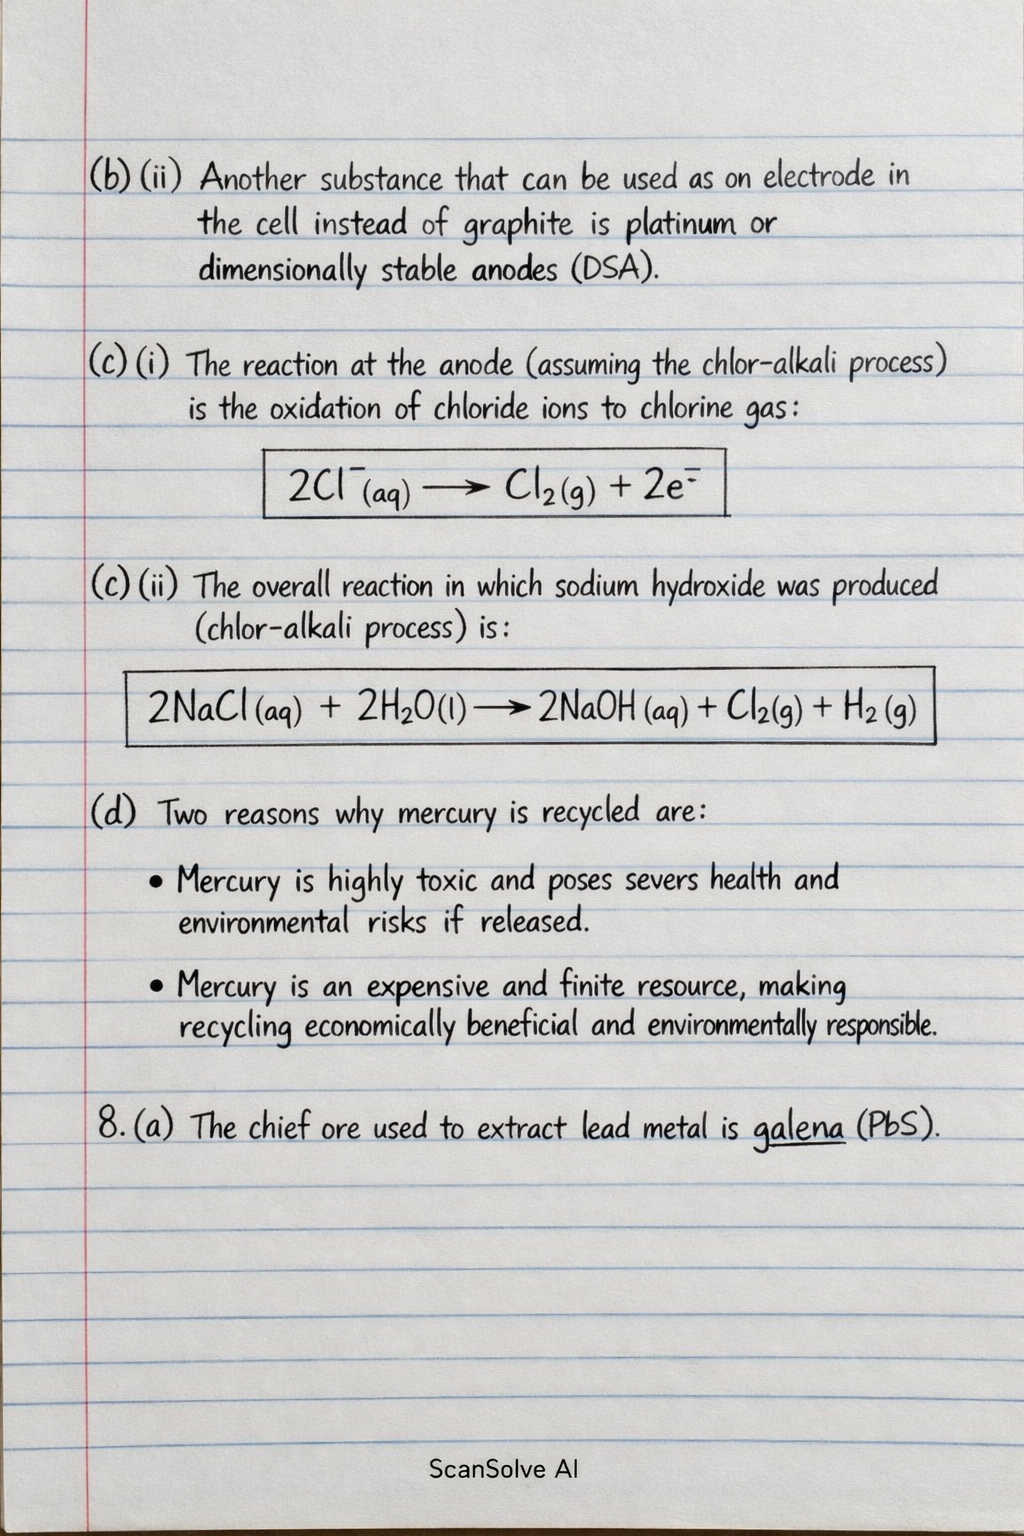 (b) (ii) Another substance that can be used as on electrode in
the cell instead of graphite is platinum or
dimensionally stable anodes (DSA).
(c) (i) The reaction at the anode (assuming the chlor-alkali process)
is the oxidation of chloride ions to chlorine gas:
2Cl⁻(aq) ⟶ Cl₂(g) + 2e⁻
(c) (ii) The overall reaction in which sodium hydroxide was produced
(chlor-alkali process) is:
2NaCl(aq) + 2H₂O(l) ⟶ 2NaOH(aq) + Cl₂(g) + H₂(g)
(d) Two reasons why mercury is recycled are:
• Mercury is highly toxic and poses severs health and
environmental risks if released.
• Mercury is an expensive and finite resource, making
recycling economically beneficial and environmentally responsible.
8. (a) The chief ore used to extract lead metal is galena (PbS).
ScanSolve AI